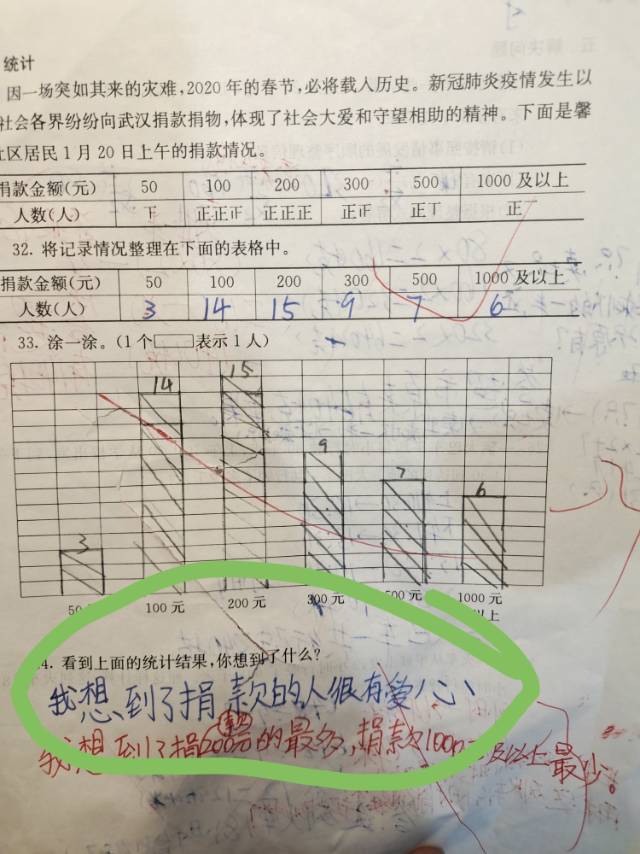 统计
因一场突如其来的灾难,2020年的春节,必将载人历史。新冠肺炎疫情发生以
社会各界纷纷向武汉捐款捐物,体现了社会大爱和守望相助的精神。下面是馨
区居民1月20日上午的捐款情况。
捐款金额(元) 50 100 200 300 500 1000及以上
人数(人) 正正正 正正正 正正 正 正
32. 将记录情况整理在下面的表格中。
捐款金额(元) 50 100 200 300 500 1000及以上
人数(人) 3 14 15 9 7 6
33. 涂一涂。(1个 表示1人)
3 14 15 9 7 6
50 100元 200元 300元 500元 1000元
以上
4. 看到上面的统计结果,你想到了什么?
我想到了捐款的人很有爱心
我想到了捐 的最多,捐款1000元及以上最少。